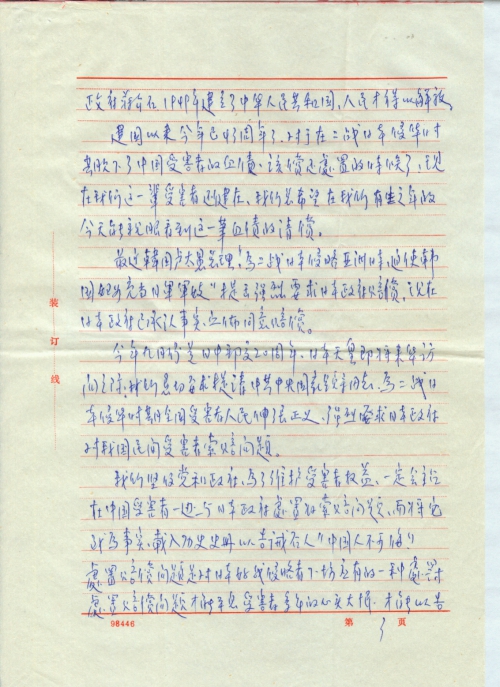 政府并在1949年建立了中华人民共和国，人民才得以解放
建国以来今年已43周年了，对于在二战日军侵华时
共欠下了中国受害者的血债，该偿还处置的时候了，现
在我们这一辈受害者还健在，我们总希望在我们有生之年的
今天能亲眼看到这一笔血债的清偿。
最近韩国卢大愚总理，为二战日军侵略亚洲时，迫使韩
国妇女充当日军"军妓"提出强烈要求日本政府赔偿，现在
日本政府已承认事实，公布同意赔偿。
今年九月份是中日邦交20周年，日本天皇即将来华访
问之际，我们恳切要求提请中共中央国家领导同志，为二战日
军侵华时其全国受害者人民伸张正义，强烈要求日本政府
对我国民间受害者索赔问题。
我们坚信党和政府，为了维护受害者权益，一定会站
在中国受害者一边，令日本政府处置好索赔问题，而将它
成为事实，载入历史史册以告诫后人"中国人不可侮"
处置赔偿问题是对日本的战侵略者下场应有的一种惩罚
处置赔偿问题才能平息受害者多年的心灵大恨，才能以告
装
订
线
98446
第 3 页